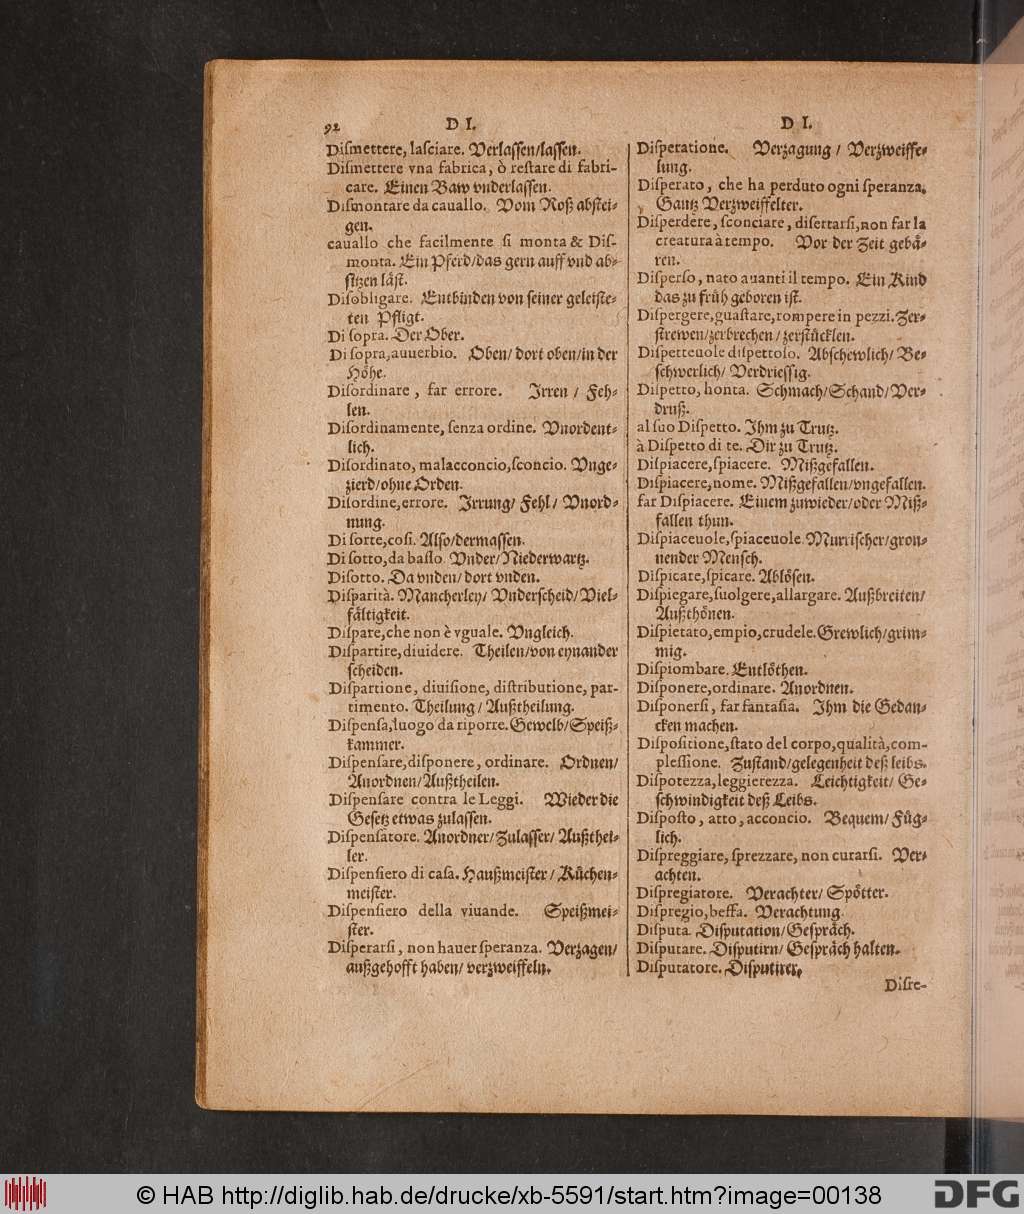 92 D I.
Diſmettere, laſciare. Verlaſſen/laſſen.
Diſmettere vna fabrica, ò reſtare di fabri-
care. Einen Baw vnderlaſſen.
Diſmontare da cauallo. Vom Roß abſtei-
gen.
cauallo che facilmente ſi monta & Diſ-
monta. Ein Pferd/das gern auff vnd ab-
ſitzen läſt.
Diſobligare. Entbinden von ſeiner geleiſte-
ten Pfligt.
Di ſopra. Der Ober.
Di ſopra, auuerbio. Oben/ dort oben/in der
Höhe.
Diſordinare, far errore. Irren / Feh-
len.
Diſordinamente, ſenza ordine. Vnordent-
lich.
Diſordinato, malacconcio, ſconcio. Vnge-
zierd/ohne Orden.
Diſordine, errore. Irrung/ Fehl/ Vnord-
nung.
Di ſorte, coſi. Alſo/dermaſſen.
Di ſotto, da baſſo. Vnder/Niederwartz.
Diſotto. Da vnden/ dort vnden.
Diſparità. Mancherley/ Vnderſcheid/Viel-
fältigkeit.
Diſpare, che non è vguale. Vngleich.
Diſpartire, diuidere. Theilen/von eynander
ſcheiden.
Diſpartione, diuiſione, diſtributione, par-
timento. Theilung/ Außtheilung.
Diſpenſa, luogo da riporre. Gewelb/Speiß-
kammer.
Diſpenſare, diſponere, ordinare. Ordnen/
Anordnen/Außtheilen.
Diſpenſare contra le Leggi. Wieder die
Geſetz etwas zulaſſen.
Diſpenſatore. Anordner/Zulaſſer/ Außthei-
ler.
Diſpenſiero di caſa. Haußmeiſter/ Küchen-
meiſter.
Diſpenſiero della viuande. Speißmei-
ſter.
Diſperarſi, non hauer ſperanza. Verzagen/
außgehofft haben/ verzweiffeln.
D I.
Diſperatione. Verzagung / Verzweiffe-
lung.
Diſperato, che ha perduto ogni ſperanza.
Gantz Verzweiffelter.
Diſperdere, ſconciare, diſertarſi, non far la
creatura à tempo. Vor der Zeit gebä-
ren.
Diſperſo, nato auanti il tempo. Ein Kind
das zu früh geboren iſt.
Diſpergere, guaſtare, rompere in pezzi. Zer-
ſtrewen/zerbrechen/zerſtücklen.
Diſpetteuole diſpettoſo. Abſchewlich/ Be-
ſchwerlich/ Verdrieſſig.
Diſpetto, honta. Schmach/Schand/Ver-
druß.
al ſuo Diſpetto. Ihm zu Trutz.
à Diſpetto di te. Dir zu Trutz.
Diſpiacere, ſpiacere. Mißgefallen.
Diſpiacere, nome. Mißgefallen/vngefallen.
far Diſpiacere. Einem zuwieder/oder Miß-
fallen thun.
Diſpiaceuole, ſpiaceuole. Murriſcher/gron-
nender Menſch.
Diſpicare, ſpicare. Ablöſen.
Diſpiegare, ſuolgere, allargare. Außbreiten/
Außthönen.
Diſpietato, empio, crudele. Grewlich/grim-
mig.
Diſpiombare. Entlöthen.
Diſponere, ordinare. Anordnen.
Diſponerſi, far fantaſia. Ihm die Gedan-
cken machen.
Diſpoſitione, ſtato del corpo, qualità, com-
pleſſione. Zuſtand/gelegenheit deß leibs.
Diſpotezza, leggierezza. Leichtigkeit/ Ge-
ſchwindigkeit deß Leibs.
Diſpoſto, atto, acconcio. Bequem/ Füg-
lich.
Diſpreggiare, ſprezzare, non curarſi. Ver-
achten.
Diſpregiatore. Verachter/ Spötter.
Diſpregio, beffa. Verachtung.
Diſputa. Diſputation/ Geſpräch.
Diſputare. Diſputirn/ Geſpräch halten.
Diſputatore. Diſputirer.
Diſre-
© HAB http://diglib.hab.de/drucke/xb-5591/start.htm?image=00138
DFG